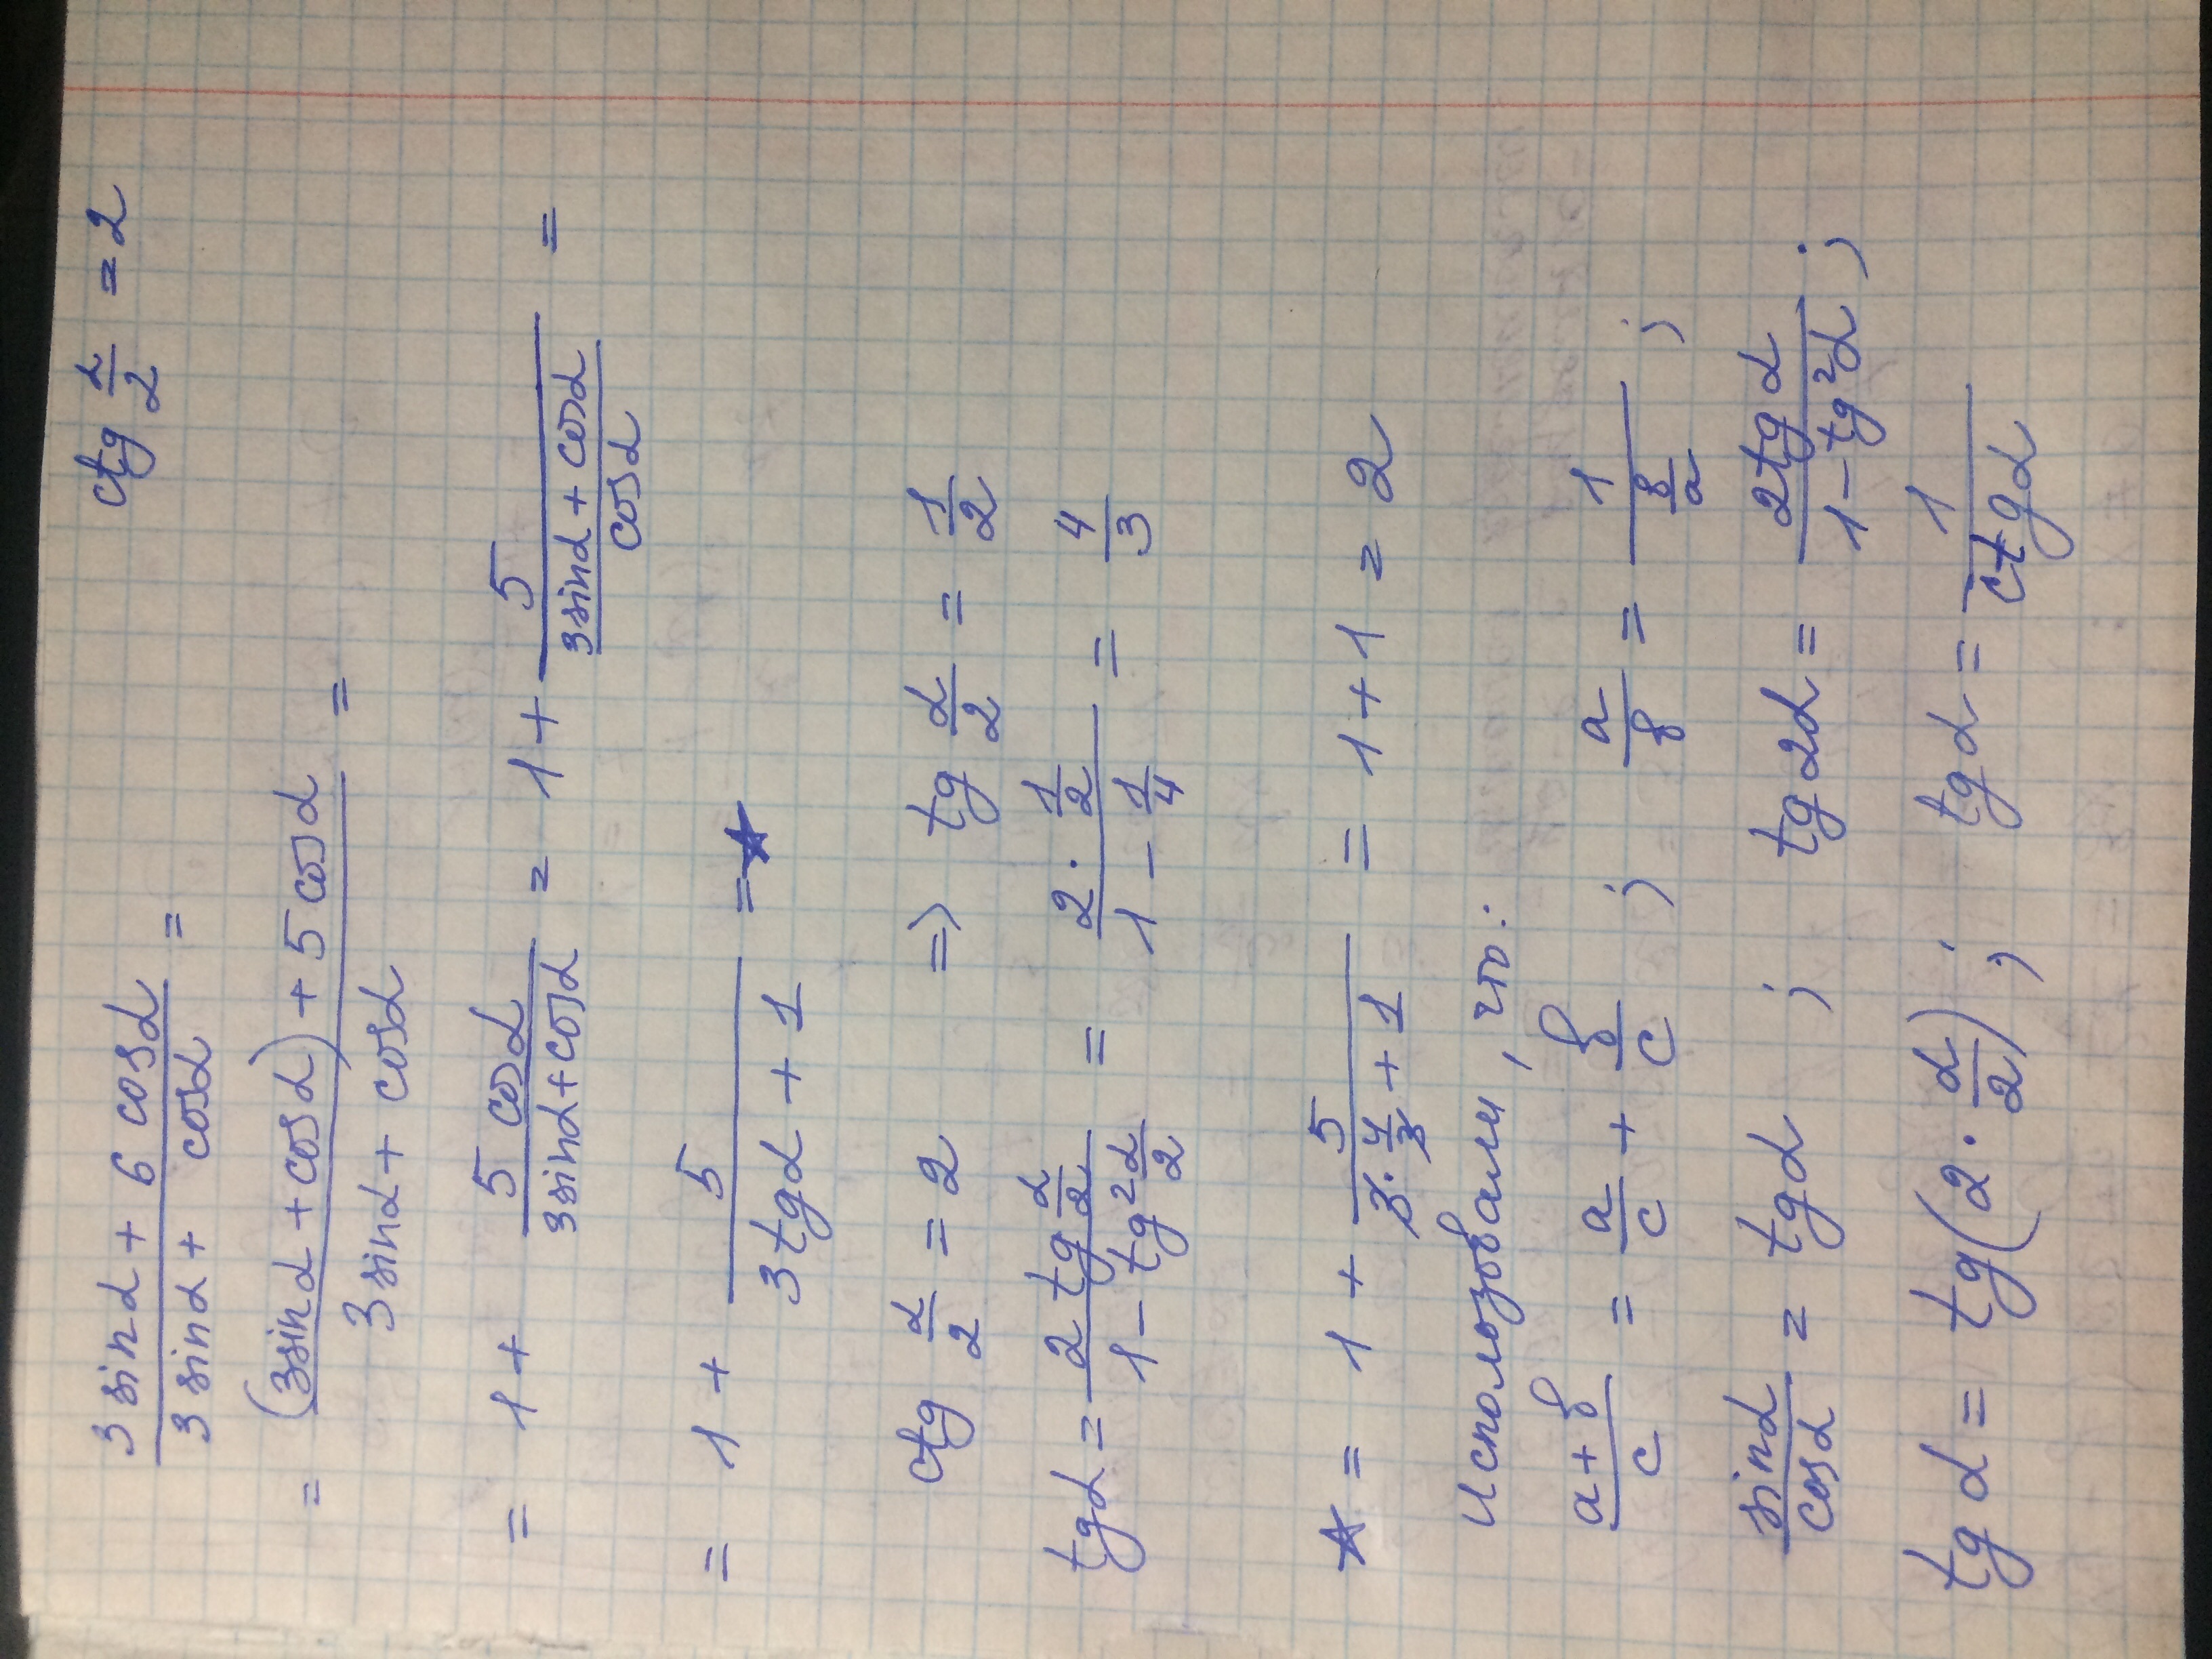 (3 sin α + 6 cos α)/(3 sin α + cos α) =      ctg α/2 = 2
= ((3 sin α + cos α) + 5 cos α)/(3 sin α + cos α) =
= 1 + (5 cos α)/(3 sin α + cos α) = 1 + 5/((3 sin α + cos α)/cos α) =
= 1 + 5/(3 tg α + 1) = ★
ctg α/2 = 2 => tg α/2 = 1/2
tg α = (2 tg α/2)/(1 - tg² α/2) = (2 · 1/2)/(1 - 1/4) = 4/3
★ = 1 + 5/(3 · 4/3 + 1) = 1 + 1 = 2
Использовали, что:
(a + b)/c = a/c + b/c ; a/b = 1/(b/a) ;
sin α/cos α = tg α ; tg 2α = (2 tg α)/(1 - tg² α) ;
tg α = tg(2 · α/2) ; tg α = 1/ctg α